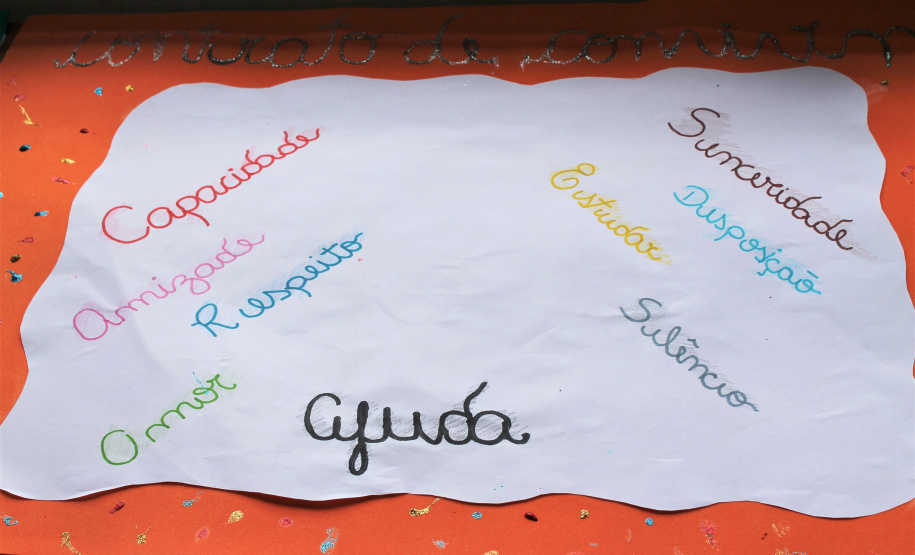 contrato de
Capacidade
Amizade
Respeito
Amor
ajuda
Sinceridade
Estudar
Disposição
Silêncio